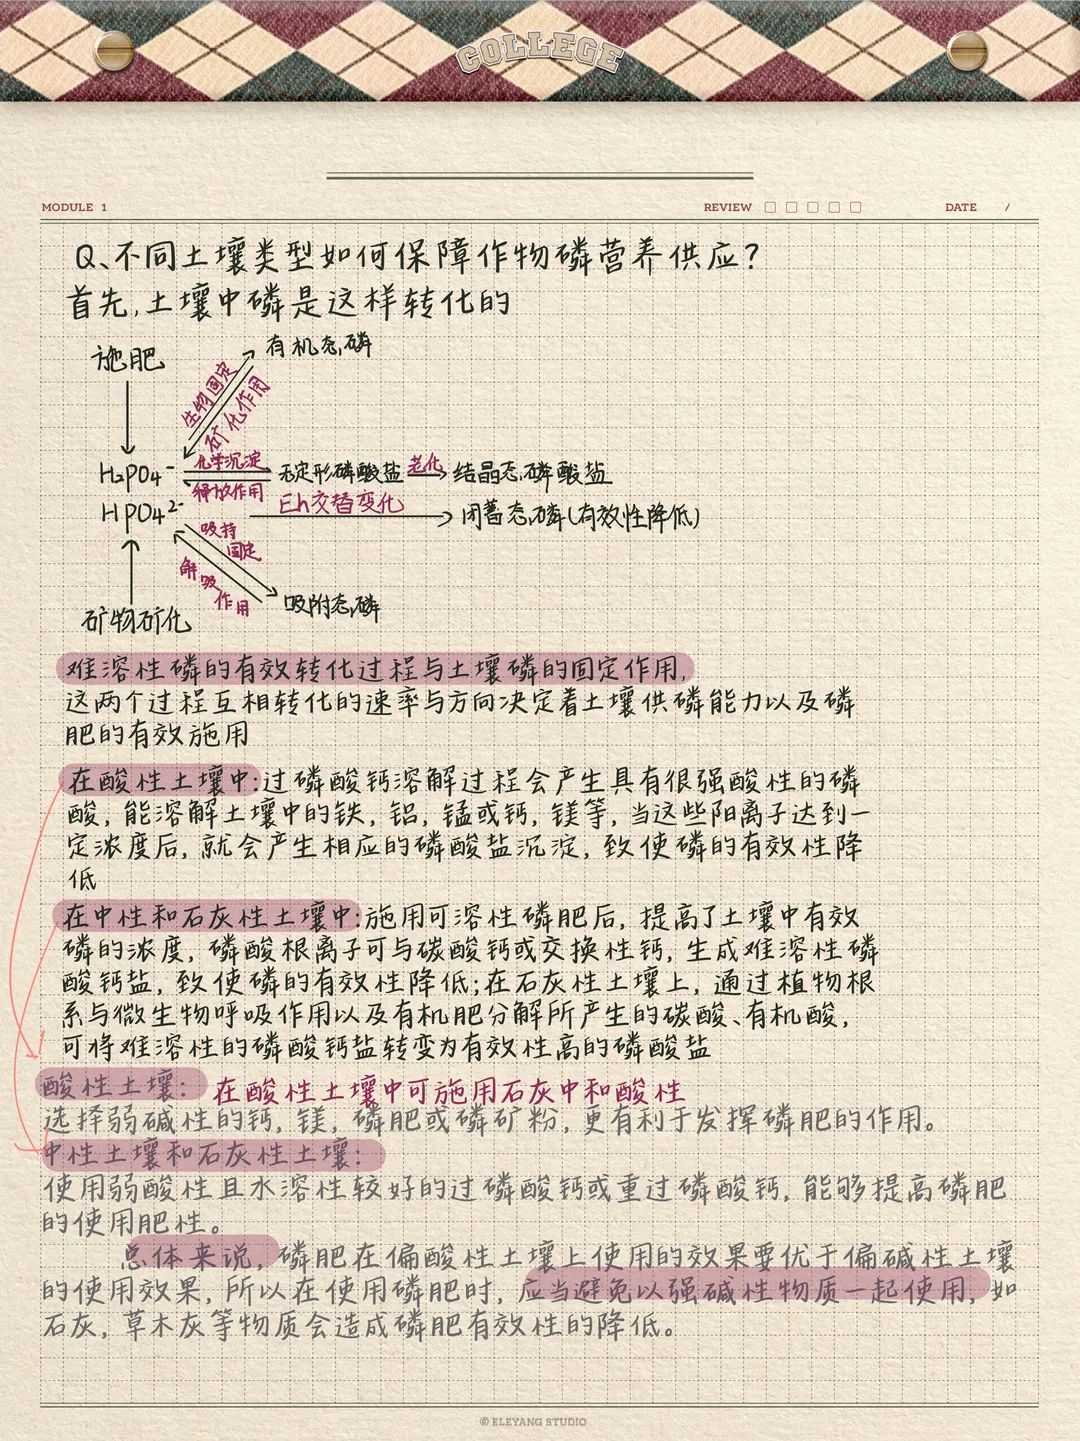 COLLEGE
MODULE 1
REVIEW
DATE /
Q、不同土壤类型如何保障作物磷营养供应？
首先,土壤中磷是这样转化的
施肥
有机态磷
生物固定
矿化作用
H₂PO₄⁻
化学沉淀
释放作用
无定形磷酸盐
老化
结晶态磷酸盐
HPO₄²⁻
Eh交替变化
闭蓄态磷(有效性降低)
吸持
固定
解吸
作用
吸附态磷
矿物矿化
难溶性磷的有效转化过程与土壤磷的固定作用,
这两个过程互相转化的速率与方向决定着土壤供磷能力以及磷
肥的有效施用
在酸性土壤中:过磷酸钙溶解过程会产生具有很强酸性的磷
酸, 能溶解土壤中的铁, 铝, 锰或钙, 镁等, 当这些阳离子达到一
定浓度后, 就会产生相应的磷酸盐沉淀, 致使磷的有效性降
低
在中性和石灰性土壤中:施用可溶性磷肥后, 提高了土壤中有效
磷的浓度, 磷酸根离子可与碳酸钙或交换性钙, 生成难溶性磷
酸钙盐, 致使磷的有效性降低;在石灰性土壤上, 通过植物根
系与微生物呼吸作用以及有机肥分解所产生的碳酸、有机酸,
可将难溶性的磷酸钙盐转变为有效性高的磷酸盐
酸性土壤: 在酸性土壤中可施用石灰中和酸性
选择弱碱性的钙, 镁, 磷肥或磷矿粉, 更有利于发挥磷肥的作用。
中性土壤和石灰性土壤:
使用弱酸性且水溶性较好的过磷酸钙或重过磷酸钙, 能够提高磷肥
的使用肥性。
总体来说, 磷肥在偏酸性土壤上使用的效果要优于偏碱性土壤
的使用效果, 所以在使用磷肥时, 应当避免以强碱性物质一起使用, 如
石灰, 草木灰等物质会造成磷肥有效性的降低。
© ELEYANG STUDIO